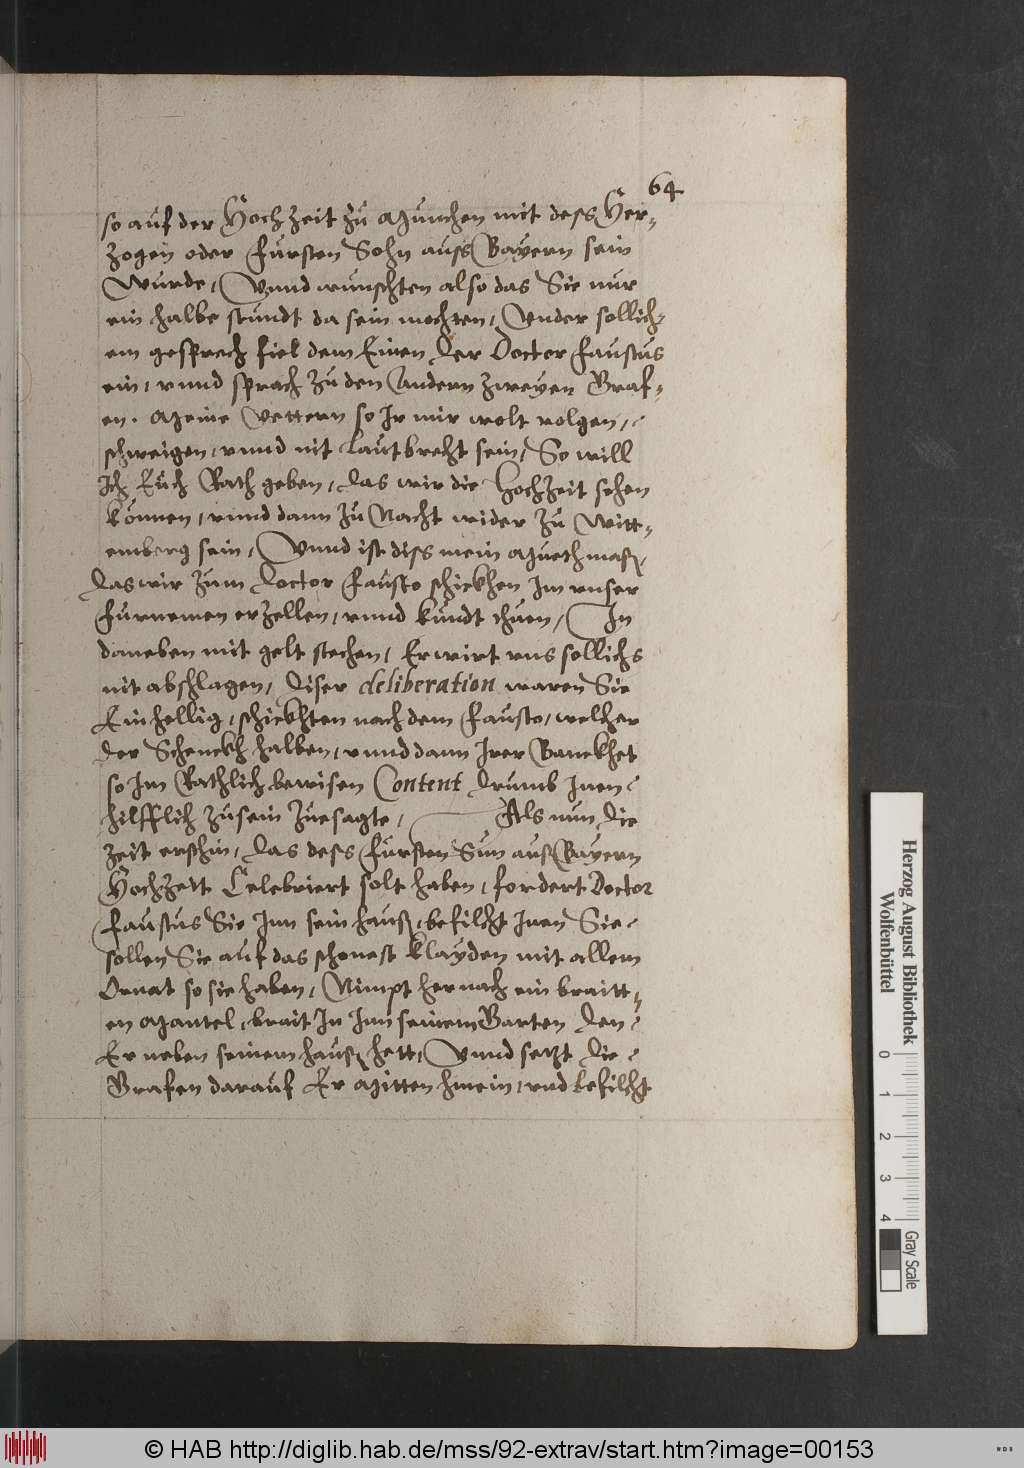 64
so auf der Hochzeit zu Munchen mit dess Her-
zogen oder Fursten Sohn auss Bayern sein
Wurde, Vnnd wunschten also das Sie nur
ein halbe stundt da sein mochten, Vnder sollich-
em gesprech fiel dem Einen Der Doctor Faustus
ein, vnnd sprach zu den Andern zweyen Graf-
en. Meine Vettern so Ir mir wolt volgen,
schweigen, vnnd nit Lautbrecht sein, So will
Ich Euch Rath geben, das wir die Hochzeit sehen
können, vnnd dann zu Nacht wider zu Witt-
emberg sein, Vnnd ist diss mein Muethmaß,
das wir zum Doctor Fausto schickhen Im vnser
Furnemen erzellen, vnnd kundt thuen, In
daneben mit gelt stechen, Er wirt vns sollichs
nit abschlagen, Diser deliberation waren Sie
Einhellig, schickhten nach dem Fausto, welcher
der Schenckh halben, vnnd dann Irer Banckhet
so Im Rathlich bewisen Content Drumb Inen
hilfflich zusein zuesagte, Als nun die
zeit erschin, das dess Fursten Sun auß Bayern
Hochzeit Celebriert solt haben, fordert Doctor
Faustus Sie Inn sein hauß, befilcht Inen Sie
sollen Sie auf das schonest klayden mit allem
Ornat so sie haben, Nimpt hernach ein braitt-
en Mantel, brait In Inn seinem Garten den
Er neben seinem hauß hett, Vnnd setzt die
Grafen darauf Er Mitten hinein, vnd befilcht
Herzog August Bibliothek
Wolfenbüttel
0 1 2 3 4
Gray Scale
© HAB http://diglib.hab.de/mss/92-extrav/start.htm?image=00153